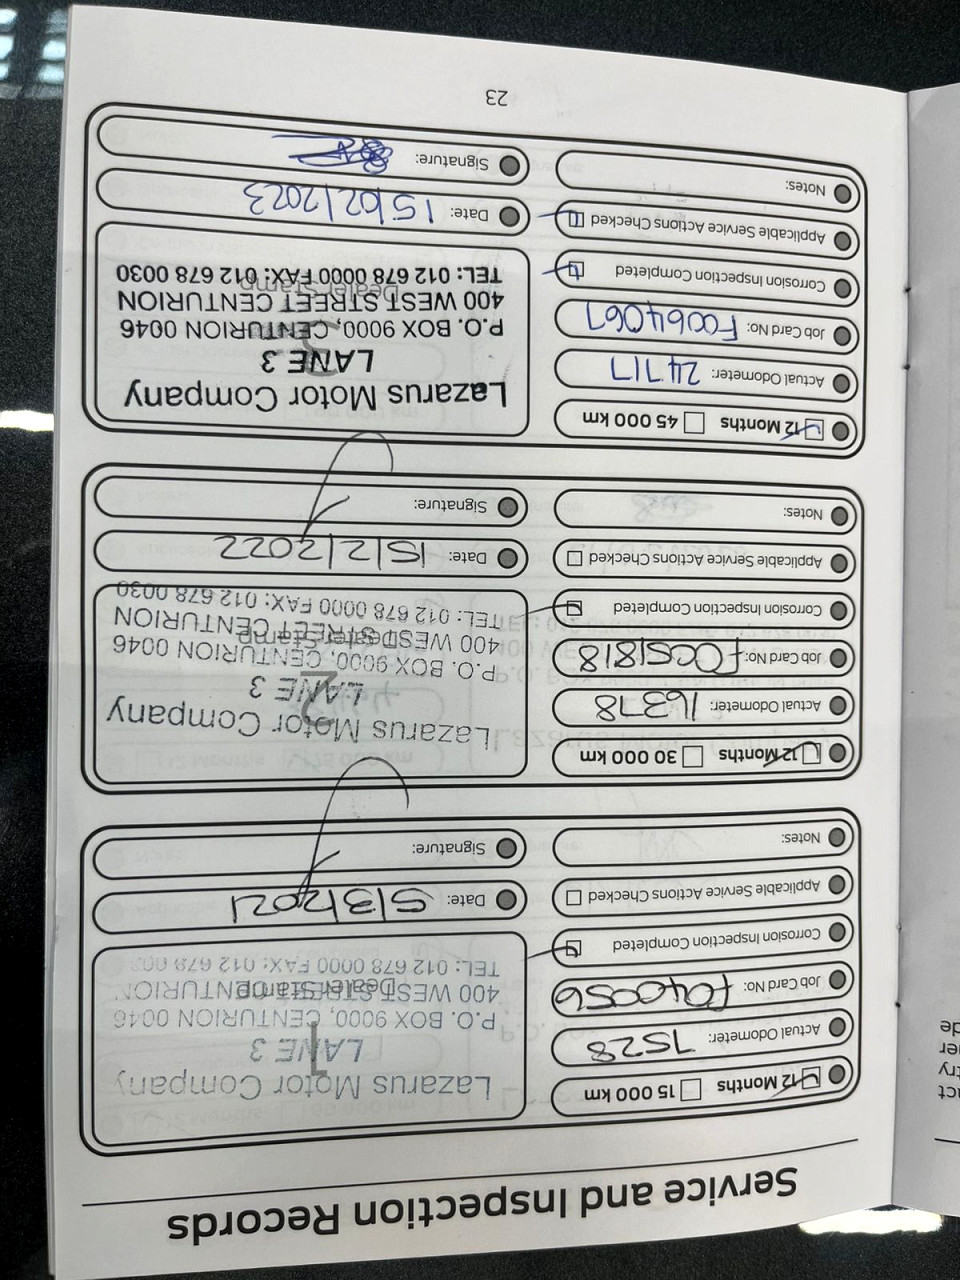 Service and Inspection Records
12 Months 15 000 km
Actual Odometer: 7528
Job Card No: F040056
Corrosion Inspection Completed
Applicable Service Actions Checked
Notes:
Lazarus Motor Company
LANE 3
P.O. BOX 9000, CENTURION 0046
400 WEST STREET CENTURION
TEL: 012 678 0000 FAX: 012 678
1
Dealer Stamp
Date: 5/3/2021
Signature:
12 Months 30 000 km
Actual Odometer: 16378
Job Card No: F0051818
Corrosion Inspection Completed
Applicable Service Actions Checked
Notes:
Lazarus Motor Company
LANE 3
P.O. BOX 9000, CENTURION 0046
400 WEST STREET CENTURION
TEL: 012 678 0000 FAX: 012 678 0030
2
Dealer Stamp
Date: 15/2/2022
Signature:
12 Months 45 000 km
Actual Odometer: 24717
Job Card No: F0064067
Corrosion Inspection Completed
Applicable Service Actions Checked
Notes:
Lazarus Motor Company
LANE 3
P.O. BOX 9000, CENTURION 0046
400 WEST STREET CENTURION
TEL: 012 678 0000 FAX: 012 678 0030
3
Dealer Stamp
Date: 15/02/2023
Signature:
23